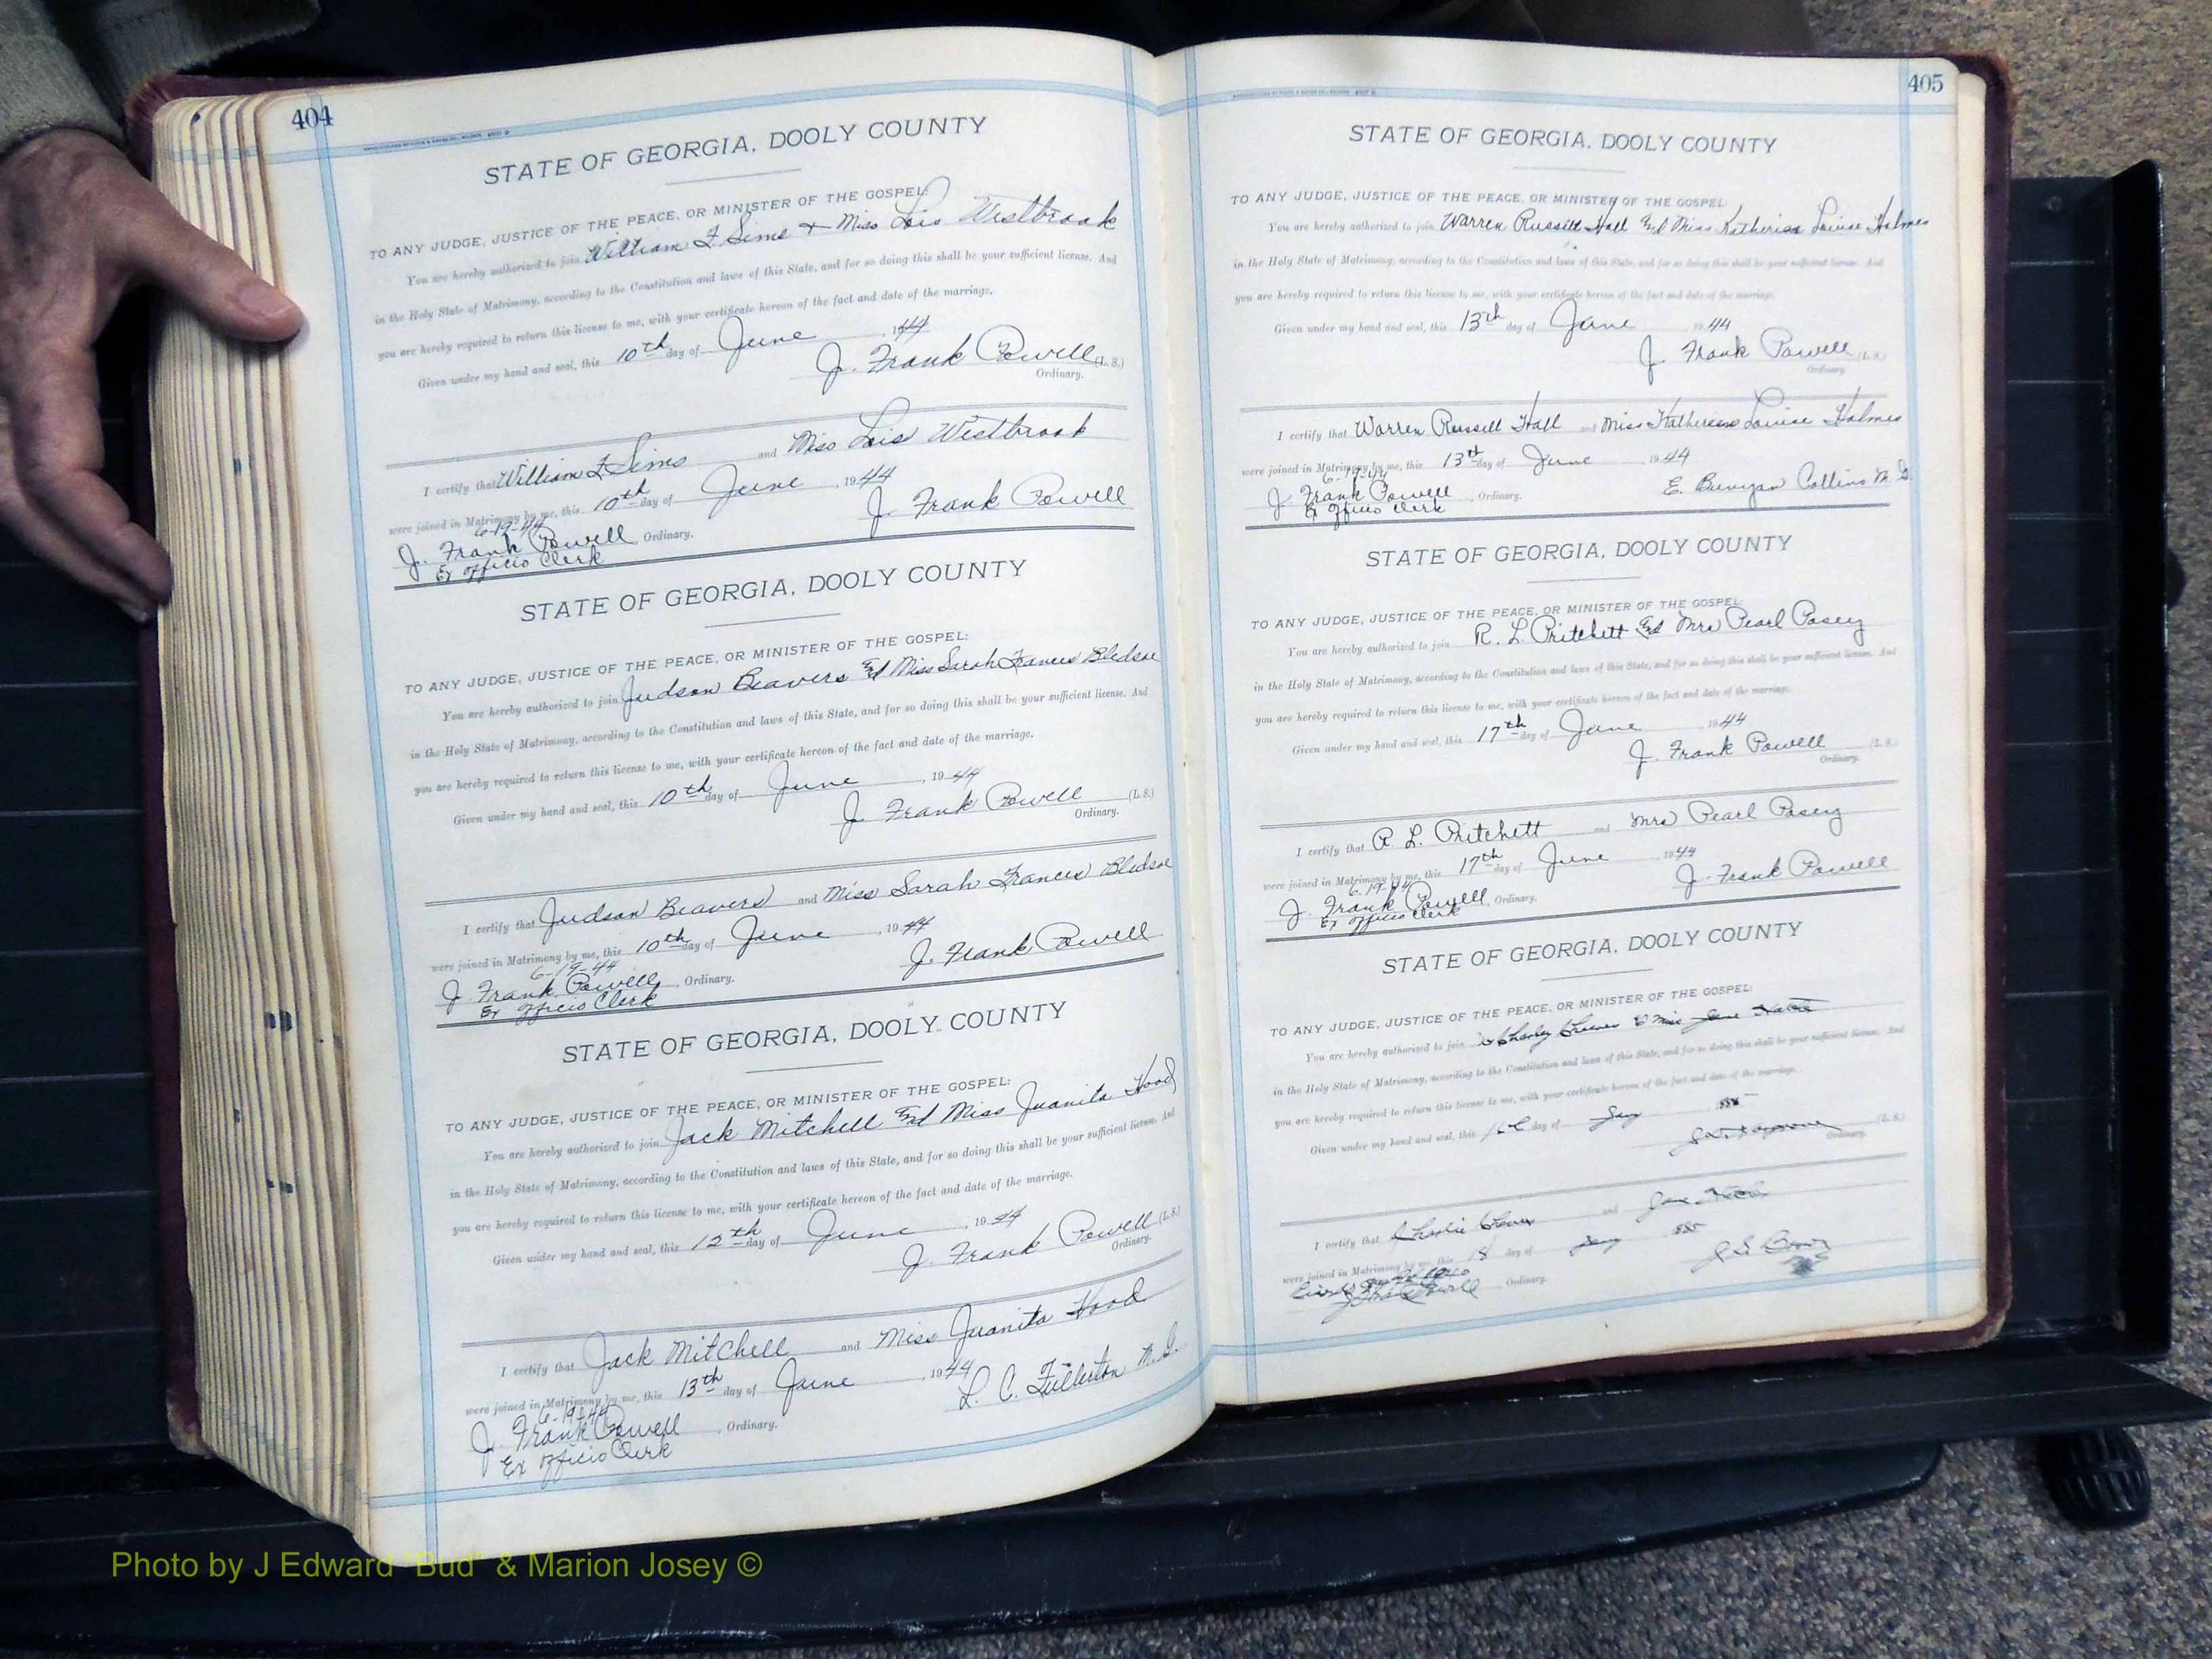 404
STATE OF GEORGIA, DOOLY COUNTY
TO ANY JUDGE, JUSTICE OF THE PEACE, OR MINISTER OF THE GOSPEL:
You are hereby authorized to join William F. Sims + Miss Lois Westbrook
in the Holy State of Matrimony, according to the Constitution and laws of this State, and for so doing this shall be your sufficient license. And
you are hereby required to return this license to me, with your certificate hereon of the fact and date of the marriage.
Given under my hand and seal, this 10th day of June, 1944
J. Frank Powell (L. S.)
Ordinary.
I certify that William F Sims and Miss Lois Westbrook
were joined in Matrimony by me, this 10th day of June, 1944
6-19-44
J. Frank Powell
J. Frank Powell Ordinary.
Ex officio Clerk
STATE OF GEORGIA, DOOLY COUNTY
TO ANY JUDGE, JUSTICE OF THE PEACE, OR MINISTER OF THE GOSPEL:
You are hereby authorized to join Judson Beavers and Miss Sarah Frances Bledsoe
in the Holy State of Matrimony, according to the Constitution and laws of this State, and for so doing this shall be your sufficient license. And
you are hereby required to return this license to me, with your certificate hereon of the fact and date of the marriage.
Given under my hand and seal, this 10th day of June, 1944
J. Frank Powell (L. S.)
Ordinary.
I certify that Judson Beavers and Miss Sarah Frances Bledsoe
were joined in Matrimony by me, this 10th day of June, 1944
6-19-44
J. Frank Powell
J. Frank Powell, Ordinary.
Ex officio Clerk
STATE OF GEORGIA, DOOLY COUNTY
TO ANY JUDGE, JUSTICE OF THE PEACE, OR MINISTER OF THE GOSPEL:
You are hereby authorized to join Jack Mitchell and Miss Juanita Hood
in the Holy State of Matrimony, according to the Constitution and laws of this State, and for so doing this shall be your sufficient license. And
you are hereby required to return this license to me, with your certificate hereon of the fact and date of the marriage.
Given under my hand and seal, this 12th day of June, 1944
J. Frank Powell (L. S.)
Ordinary.
I certify that Jack Mitchell and Miss Juanita Hood
were joined in Matrimony by me, this 13th day of June, 1944
6-19-44
L. C. Fullerton M. G.
J. Frank Powell, Ordinary.
Ex officio Clerk
405
STATE OF GEORGIA, DOOLY COUNTY
TO ANY JUDGE, JUSTICE OF THE PEACE, OR MINISTER OF THE GOSPEL:
You are hereby authorized to join Warren Russell Hall and Miss Katherine Louise Holmes
in the Holy State of Matrimony, according to the Constitution and laws of this State, and for so doing this shall be your sufficient license. And
you are hereby required to return this license to me, with your certificate hereon of the fact and date of the marriage.
Given under my hand and seal, this 13th day of June 1944
J. Frank Powell (L. S.)
Ordinary.
I certify that Warren Russell Hall and Miss Katherine Louise Holmes
were joined in Matrimony by me, this 13th day of June 1944
6-19-44
E. Bunyan Collins M. G.
J. Frank Powell, Ordinary.
Ex officio Clerk
STATE OF GEORGIA, DOOLY COUNTY
TO ANY JUDGE, JUSTICE OF THE PEACE, OR MINISTER OF THE GOSPEL:
You are hereby authorized to join R. L. Pritchett and Mrs Pearl Posey
in the Holy State of Matrimony, according to the Constitution and laws of this State, and for so doing this shall be your sufficient license. And
you are hereby required to return this license to me, with your certificate hereon of the fact and date of the marriage.
Given under my hand and seal, this 17th day of June 1944
J. Frank Powell (L. S.)
Ordinary.
I certify that R. L. Pritchett and Mrs Pearl Posey
were joined in Matrimony by me, this 17th day of June 1944
6-19-44
J. Frank Powell
J. Frank Powell, Ordinary.
Ex officio Clerk
STATE OF GEORGIA, DOOLY COUNTY
TO ANY JUDGE, JUSTICE OF THE PEACE, OR MINISTER OF THE GOSPEL:
You are hereby authorized to join Miss Jane
in the Holy State of Matrimony, according to the Constitution and laws of this State, and for so doing this shall be your sufficient license. And
you are hereby required to return this license to me, with your certificate hereon of the fact and date of the marriage.
Given under my hand and seal, this day of
(L. S.)
Ordinary.
I certify that Charlie and
were joined in Matrimony by me, this 18 day of
Ordinary.
Photo by J Edward "Bud" & Marion Josey ©